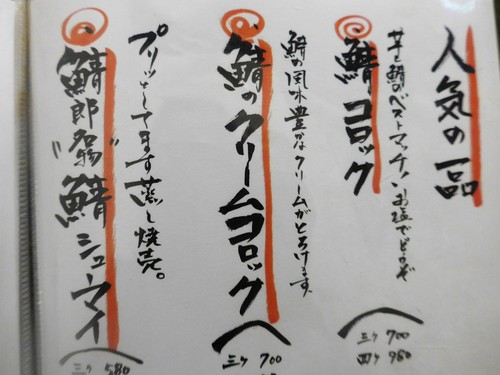 人気の一品
鯖コロック
芋と鯖のベストマッチ!!お塩でどうぞ
三ヶ 700
四ヶ 980
鯖のクリームコロック
鯖の風味豊かなクリームがとろけます。
三ヶ 700
鯖郎"名物"鯖シューマイ
プリッとしてます蒸し焼売。
三ヶ 580